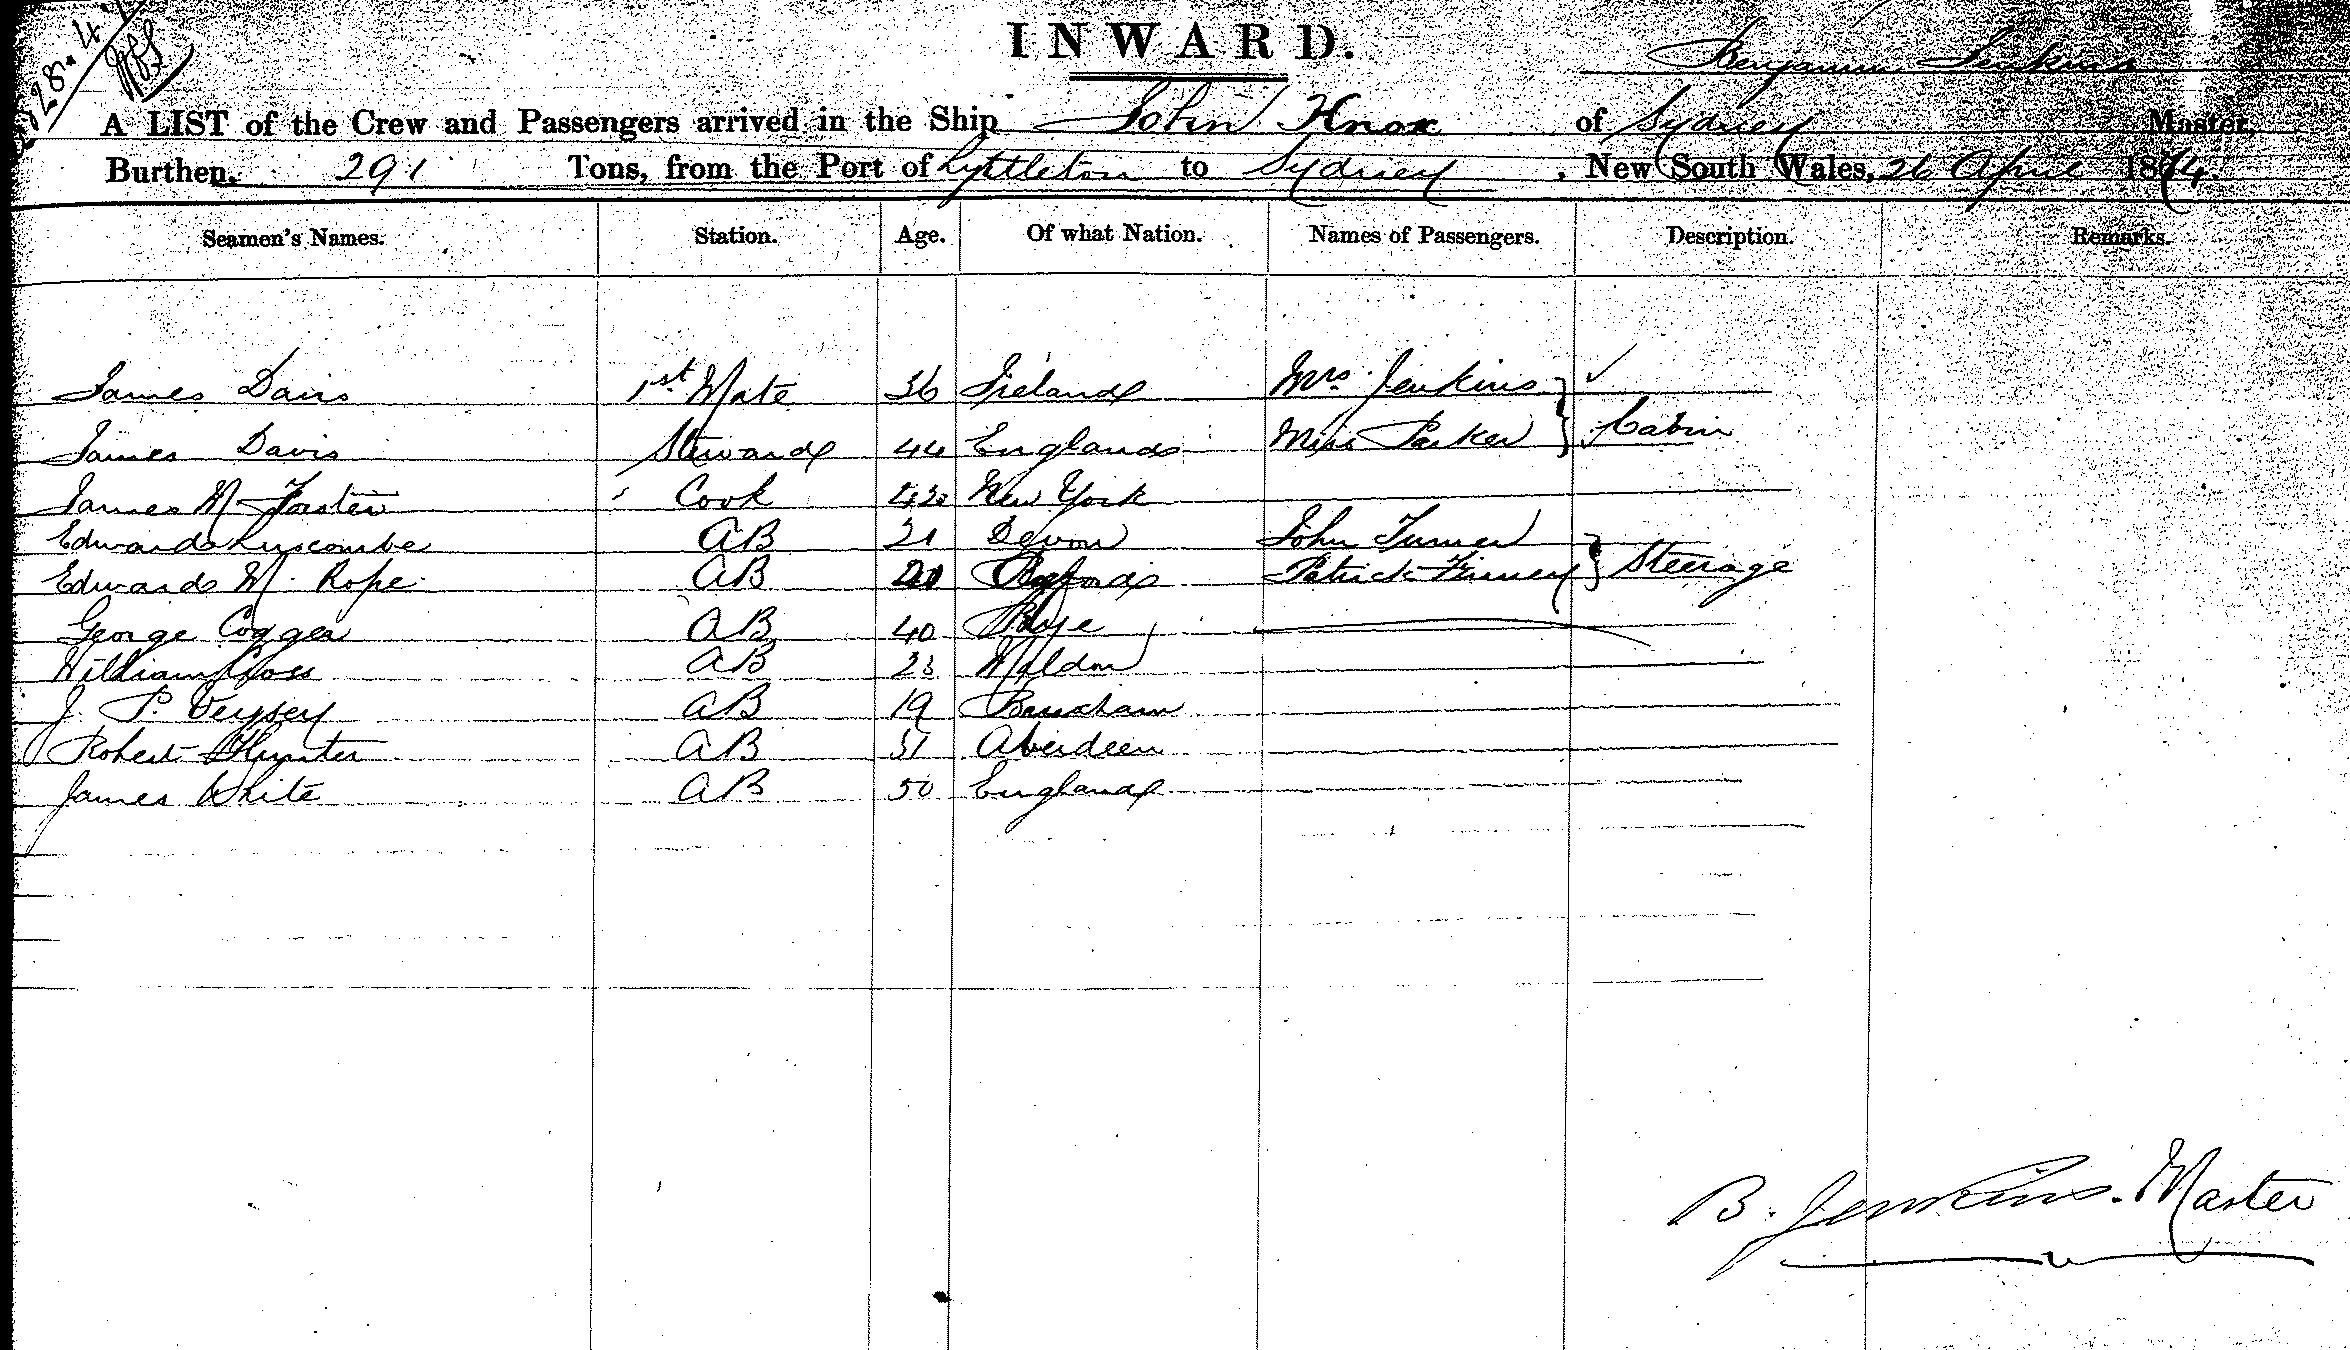 28.4.
INWARD.
Benjamin Jenkins
A LIST of the Crew and Passengers arrived in the Ship John Knox of Sydney Master,
Burthen, 291 Tons, from the Port of Lyttleton to Sydney, New South Wales, 26 April 1874.
Seamen's Names. Station. Age. Of what Nation. Names of Passengers. Description. Remarks.
James Davis 1st Mate 36 Ireland Mrs. Jenkins ✓
James Davis Steward 44 England Miss Parker } Cabin
James M Forster Cook New York
Edward Luscombe AB 21 Devon John Turner
Edward W. Rope AB Patrick Finney } Steerage
George Cogger AB 40 Rye
William Goss AB 23 Maldon
J. P. Veysey AB 19 Brixham
Robert Hunter AB 51 Aberdeen
James White AB 50 England
B. Jenkins. Master